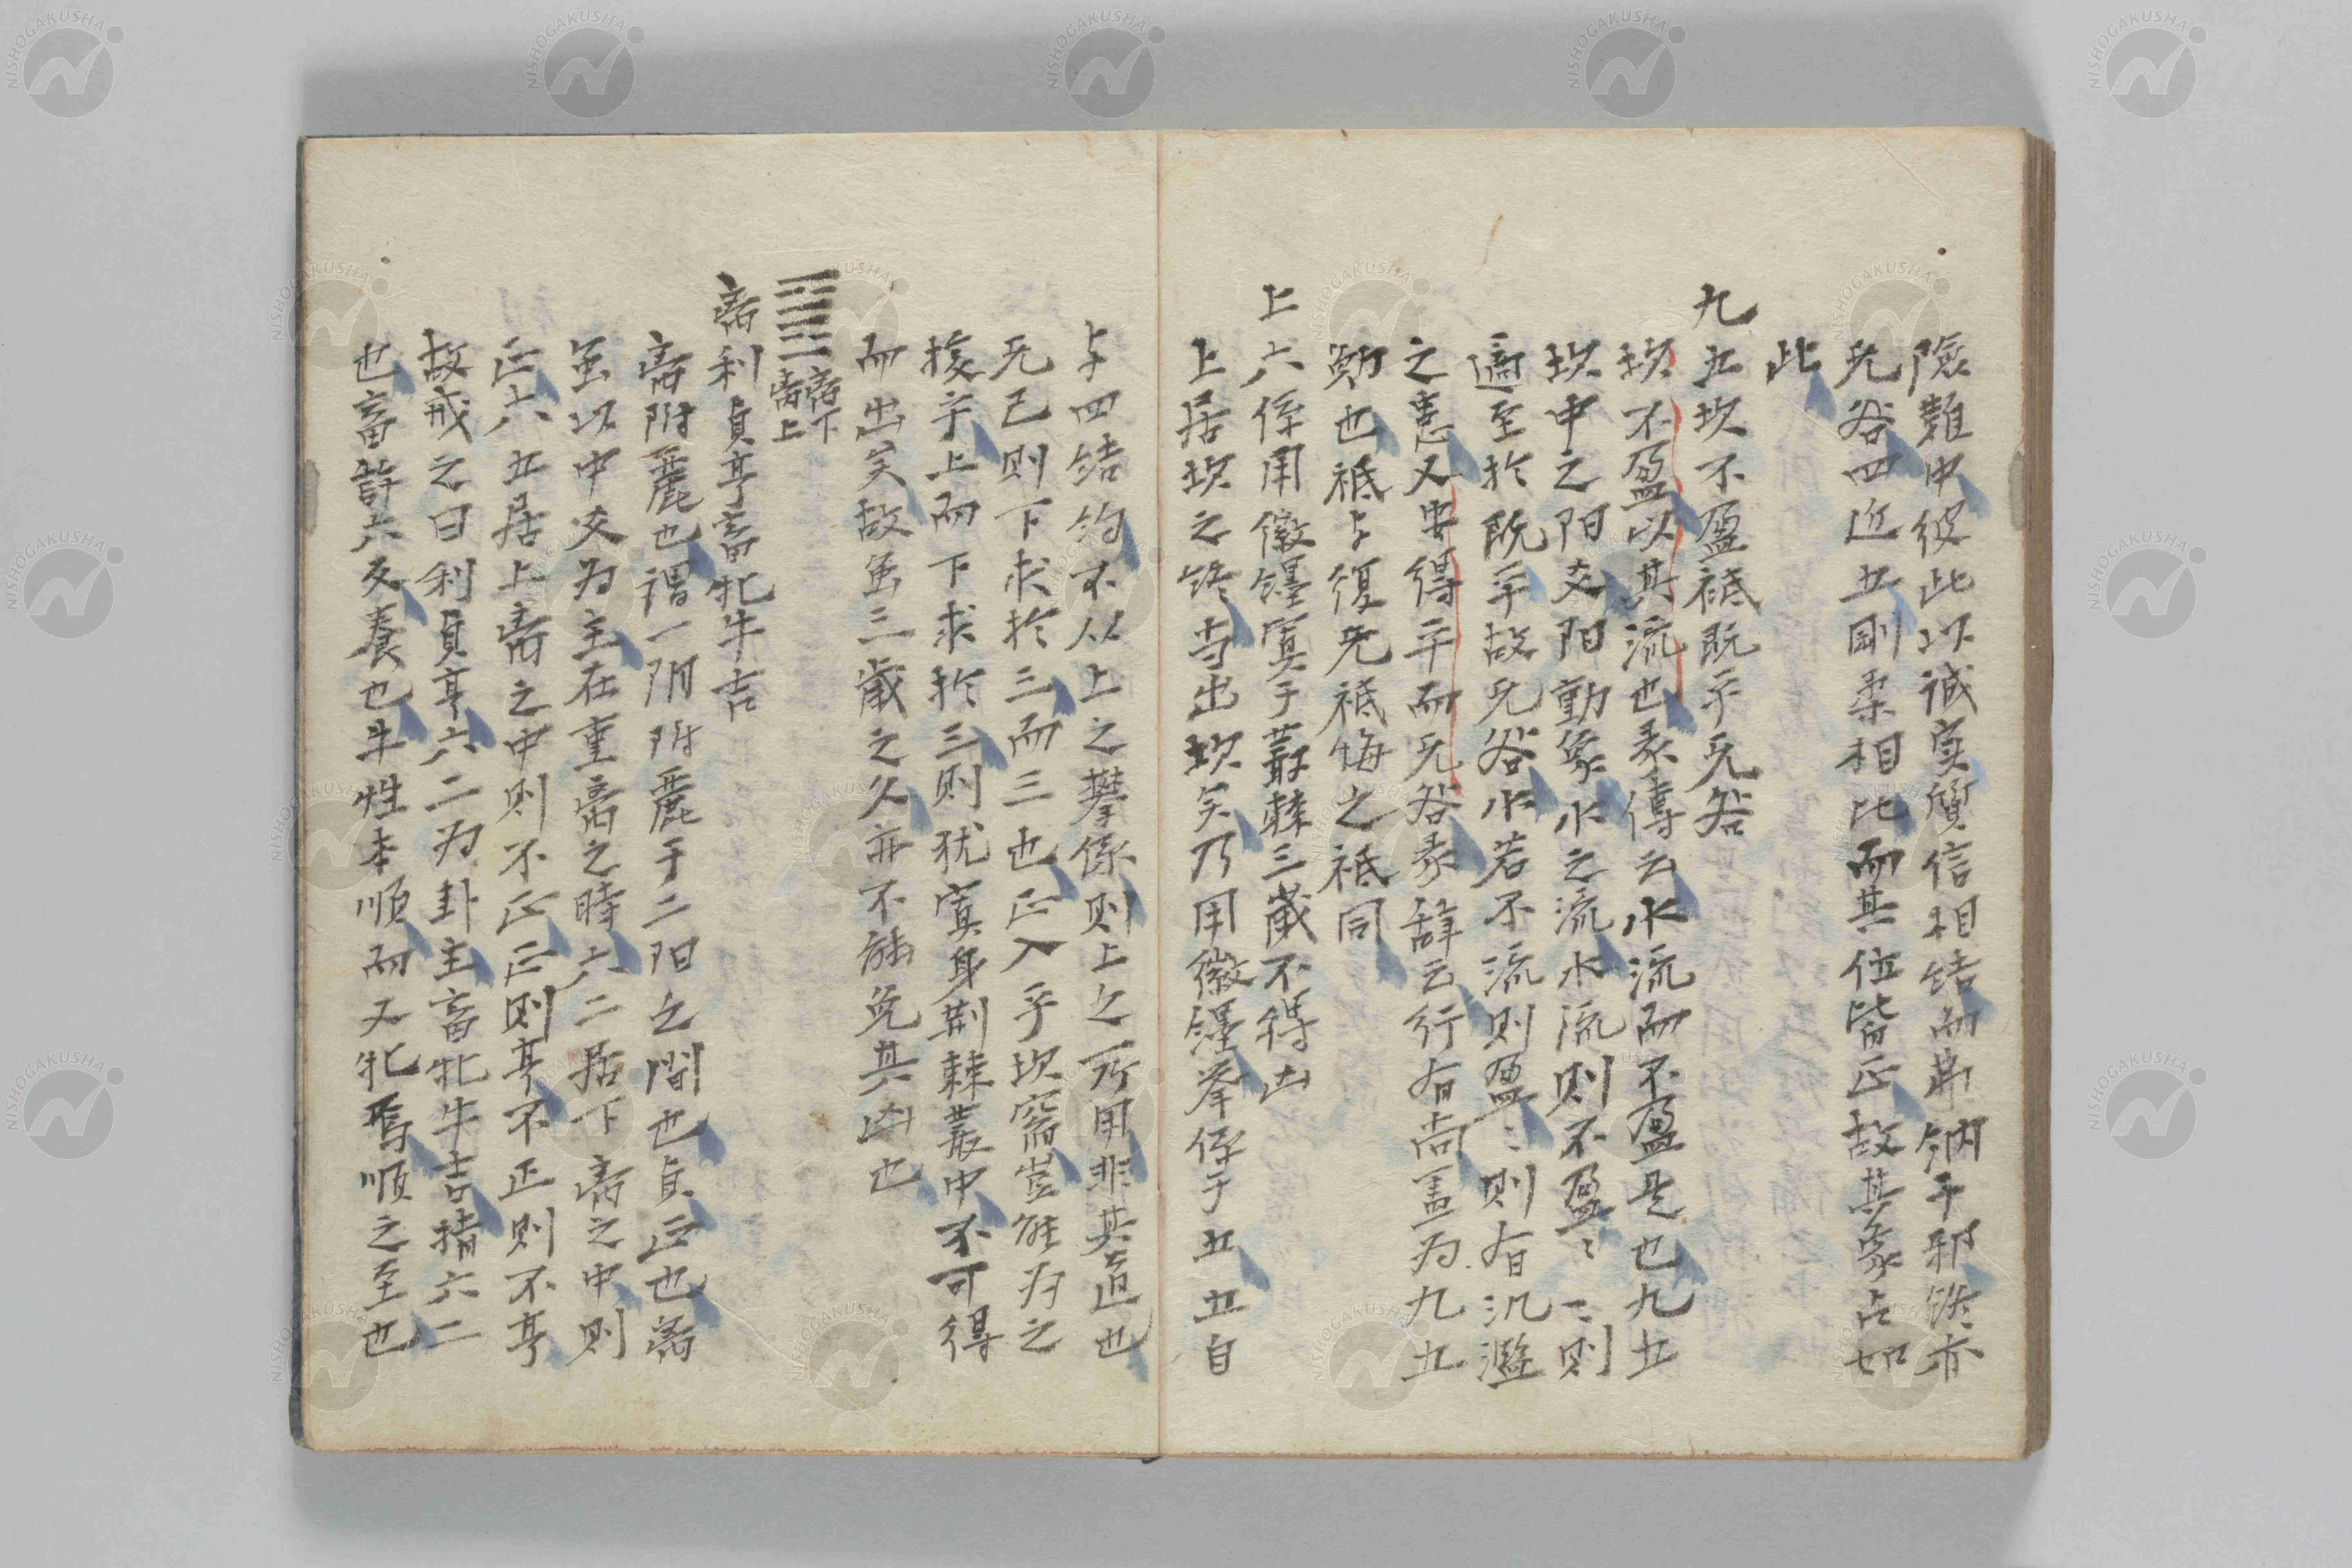 險難中彼此以誠實質信相結而弗納于邪終亦
无咎四近五剛柔相比而其位皆正故其象占如
此
九五坎不盈祗既平无咎
坎不盈以其流也彖傳云水流而不盈是也九五
坎中之陽爻陽動象水之流水流則不盈〻〻則
適至於既平故无咎水若不流則盈〻則有汎濫
之患又安得平而无咎彖辭云行有尚蓋为九五
也祗与復无祗悔之祗同
上六係用徽纆寘于叢棘三歲不得凶
上居坎之終当出坎矣乃用徽纆拳係于五五自
与四结约不从上之攀係则上之所用非其道也
无已则下求於三而三也正入乎坎窞豈能为之
援乎上而下求於三则犹寘身荆棘叢中不可得
而出矣故虽三歲之久亦不能免其凶也
䷝离下离上
离利貞亨畜牝牛吉
离附麗也謂一阴附麗于二阳之間也貞正也离
虽以中爻为主在重离之時六二居下离之中则
正六五居上离之中则不正正则亨不正则不亨
故戒之曰利貞亨六二为卦主畜牝牛吉指六二
也畜許六反養也牛性本順而又牝焉順之至也